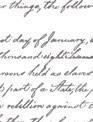 r things, the follow
st day of January, a
thousand eight hun
rsons held as slaves
d part of a State, the p
rebellion against t